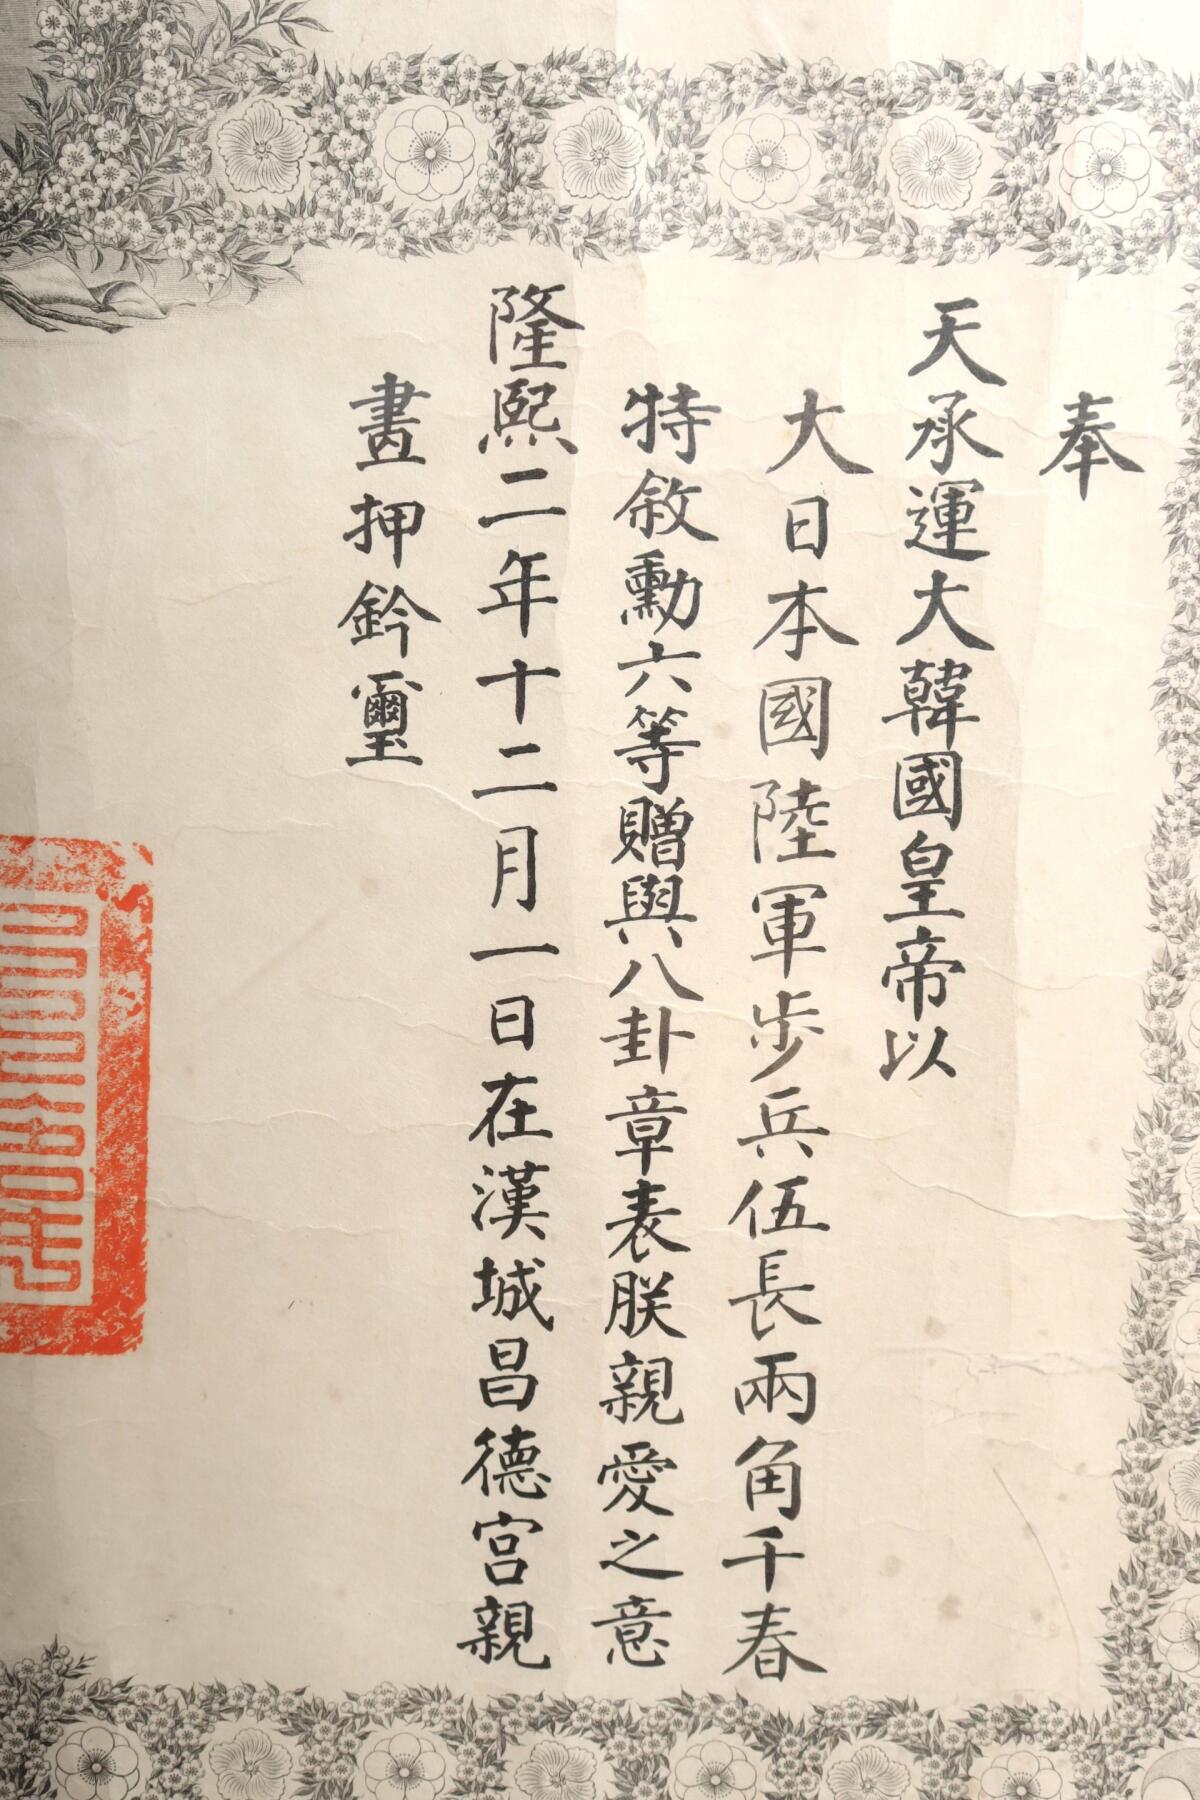 奉
天承運大韓國皇帝以
大日本國陸軍步兵伍長兩角千春
特敘勳六等贈與八卦章表朕親愛之意
隆熙二年十二月一日在漢城昌德宮親
畫押鈐璽